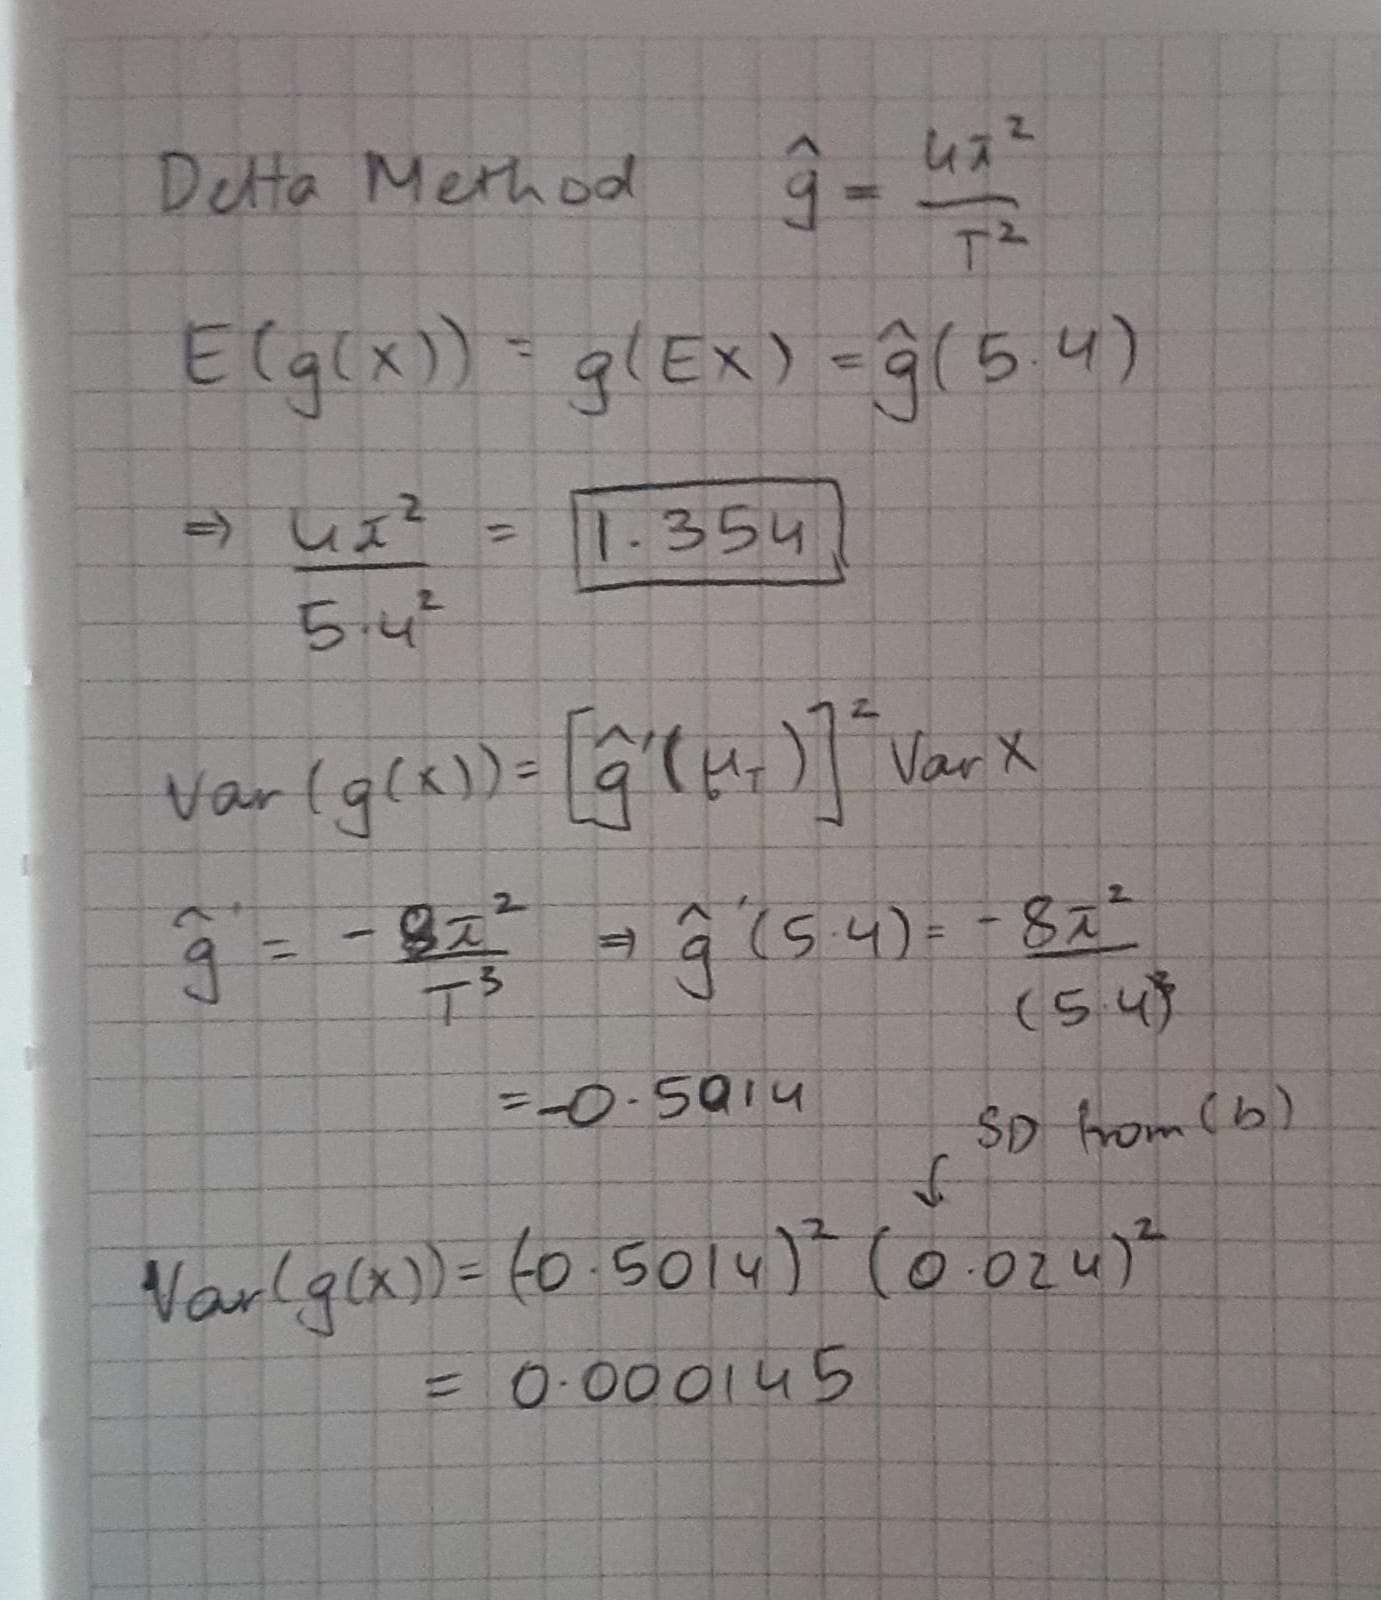 Delta Method ĝ = 4π² / T²
E(g(x)) = g(EX) = ĝ(5.4)
⇒ 4π² / 5.4² = 1.354
Var(g(x)) = [ĝ'(μ_T)]² Var X
ĝ' = -8π² / T³ ⇒ ĝ'(5.4) = -8π² / (5.4)³
= -0.5014
SD from (b)
↓
Var(g(x)) = (-0.5014)² (0.024)²
= 0.000145